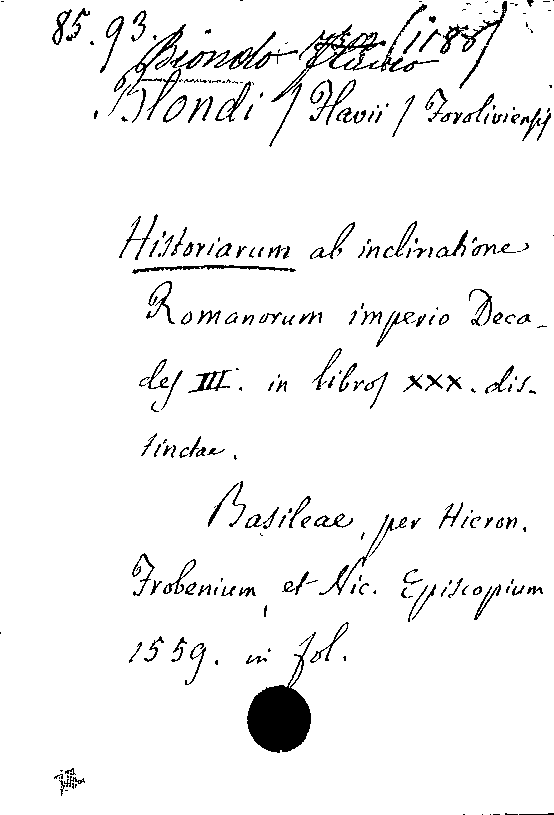 85.93.
(1188)
Biondo Flavio
Blondi / Flavii / Foroliviensis
Historiarum ab inclinatione
Romanorum imperio Deca-
des III. in libros XXX. dis-
tinctae.
Basileae, per Hieron.
Frobenium, et Nic. Episcopium
1559. in fol.